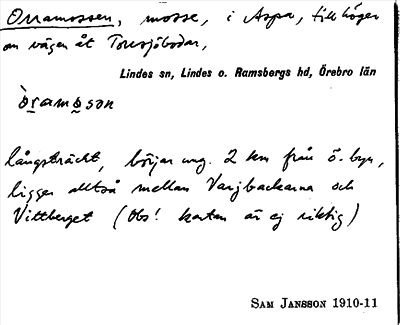 Orramossen, mosse, i Aspa, till höger
om vägen åt Toresjöbodar,
Lindes sn, Lindes o. Ramsbergs hd, Örebro län
òramo̱son
långsträckt, börjar ung. 2 km från ö. byn,
ligger alltså mellan Vargbackarna och
Vittberget (Obs! kartan är ej riktig)
SAM JANSSON 1910-11